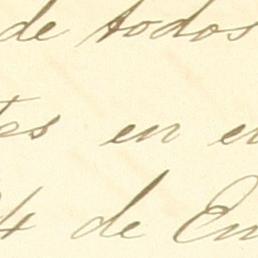 de todos
tes en e
4 de En